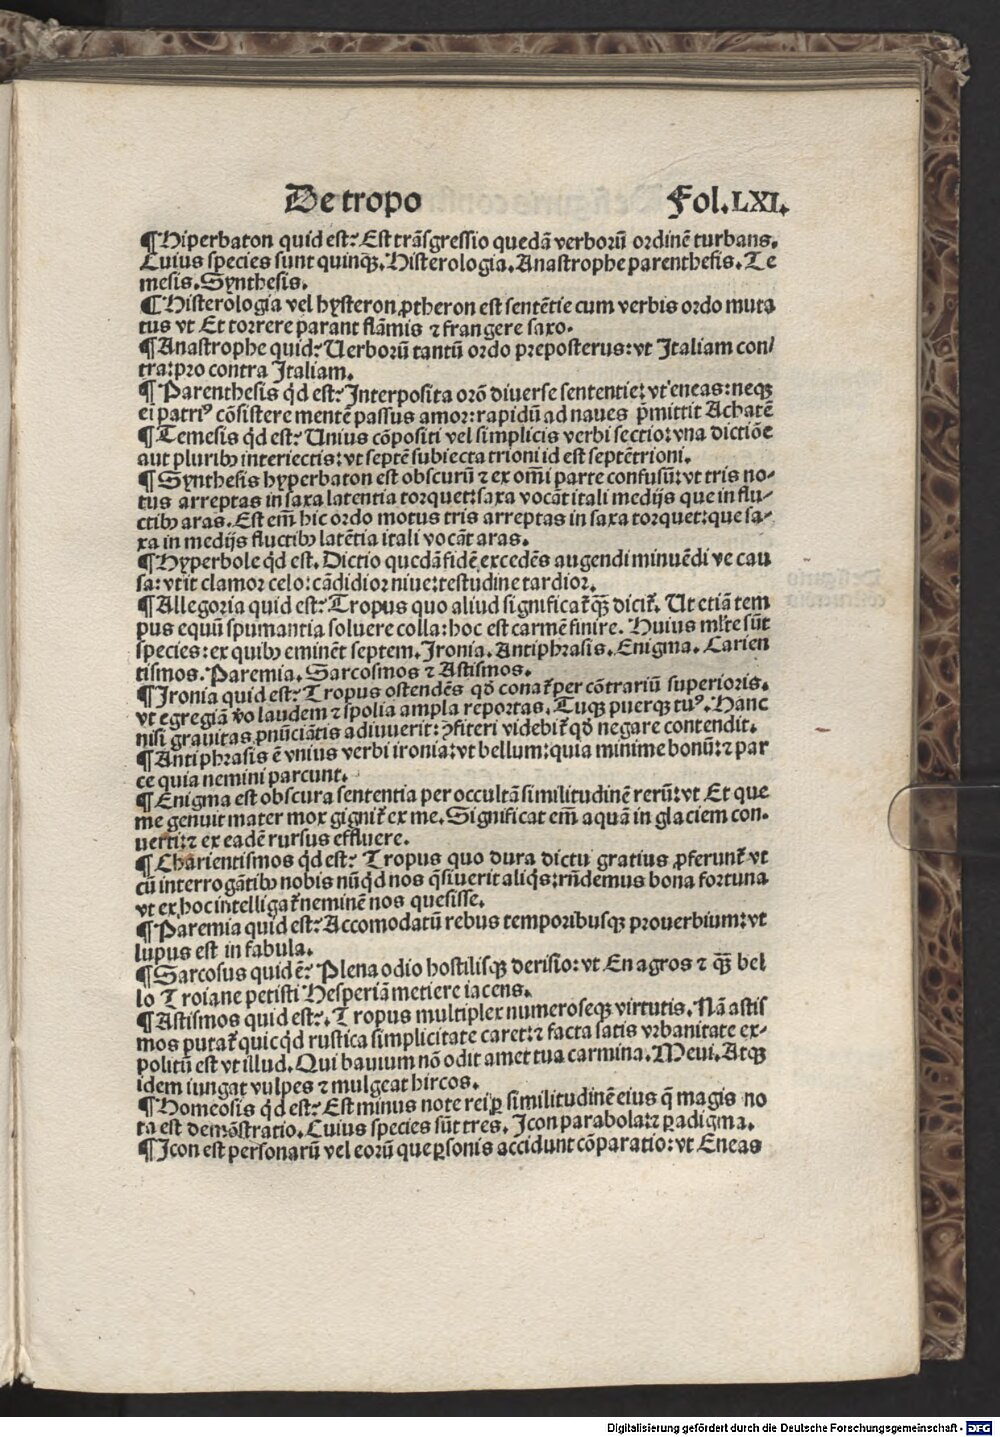 De tropo Fol.LXI.
¶Hiperbaton quid est? Est trãsgressio quedã verborũ ordinẽ turbans.
Cuius species sunt quinqꝫ. Histerologia. Anastrophe parenthesis. Te
mesis. Synthesis.
¶Histerologia vel hysteron ꝓtheron est sentẽtie cum verbis ordo muta
tus vt Et torrere parant flãmis ⁊ frangere saxo.
¶Anastrophe quid? Uerborũ tantũ ordo preposterus: vt Italiam con/
tra: pro contra Italiam.
¶Parenthesis qͥd est? Interposita orõ diuerse sententie: vt eneas: neqꝫ
ei patriꝰ cõsistere mentẽ passus amor: rapidũ ad naues p̃mittit Achatẽ
¶Temesis qͥd est? Unius cõpositi vel simplicis verbi sectio: vna dictiõe
aut pluribꝫ interiectis: vt septẽ subiecta trioni id est septẽtrioni.
¶Synthesis hyperbaton est obscurũ ⁊ ex omĩ parte confusũ: vt tris no-
tus arreptas in saxa latentia torquet: saxa vocãt itali medijs que in flu-
ctibꝫ aras. Est em̃ hic ordo motus tris arreptas in saxa torquet: que sa-
xa in medijs fluctibꝫ latẽtia itali vocãt aras.
¶Hyperbole qͥd est. Dictio quedã fidẽ excedẽs augendi minuẽdi ve cau
sa: vt it clamor celo: cãdidior niue: testudine tardior.
¶Allegoria quid est? Tropus quo aliud significat᷑ qꝫ̃ dicit᷑. Ut etiã tem
pus equũ spumantia soluere colla: hoc est carmẽ finire. Huius ml̃te sũt
species: ex quibꝫ eminẽt septem. Ironia. Antiphrasis. Enigma. Carien
tismos. Paremia. Sarcosmos ⁊ Astismos.
¶Ironia quid est? Tropus ostendẽs qd̾ conat᷑ per cõtrariũ superioris.
vt egregiã v̾o laudem ⁊ spolia ampla reportas. Tuqꝫ puerqꝫ tuꝰ. Hanc
nisi grauitas ꝓnũciãtis adiuuerit: ꝯfiteri videbit᷑ qd̾ negare contendit.
¶Antiphrasis ẽ vnius verbi ironia: vt bellum: quia minime bonũ: ⁊ par
ce quia nemini parcunt.
¶Enigma est obscura sententia per occultã similitudinẽ rerũ: vt Et que
me genuit mater mox gignit᷑ ex me. Significat em̃ aquã in glaciem con-
uerti: ⁊ ex eadẽ rursus effluere.
¶Charientismos qͥd est? Tropus quo dura dictu gratius ꝓferunt᷑ vt
cũ interrogãtibꝫ nobis nũqͥd nos q̃siuerit aliqͥs: rñdemus bona fortuna
vt ex hoc intelligat᷑ neminẽ nos quesisse.
¶Paremia quid est? Accomodatũ rebus temporibusqꝫ prouerbium: vt
lupus est in fabula.
¶Sarcosus quid ẽ? Plena odio hostilisqꝫ derisio: vt En agros ⁊ qꝫ̃ bel
lo Troiane petisti Hesperiã metiere iacens.
¶Astismos quid est?. Tropus multiplex numeroseqꝫ virtutis. Nã astis
mos putat᷑ quicqͥd rustica simplicitate caret: ⁊ facta satis vrbanitate ex-
politũ est vt illud. Qui bauium nõ odit amet tua carmina. Meui. Atqꝫ
idem iungat vulpes ⁊ mulgeat hircos.
¶Homeosis qͥd est? Est minus note rei ꝑ similitudinẽ eius q̃ magis no
ta est demõstratio. Cuius species sũt tres. Icon parabola: ⁊ ꝑadigma.
¶Icon est personarũ vel eorũ que ꝑsonis accidunt cõparatio: vt Eneas
Digitalisierung gefördert durch die Deutsche Forschungsgemeinschaft - DFG